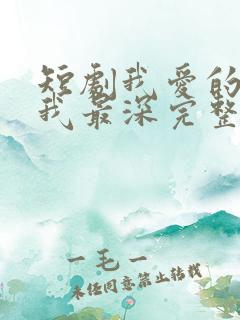 短劇我愛的
我最深完整
一毛一
未经同意禁止转载